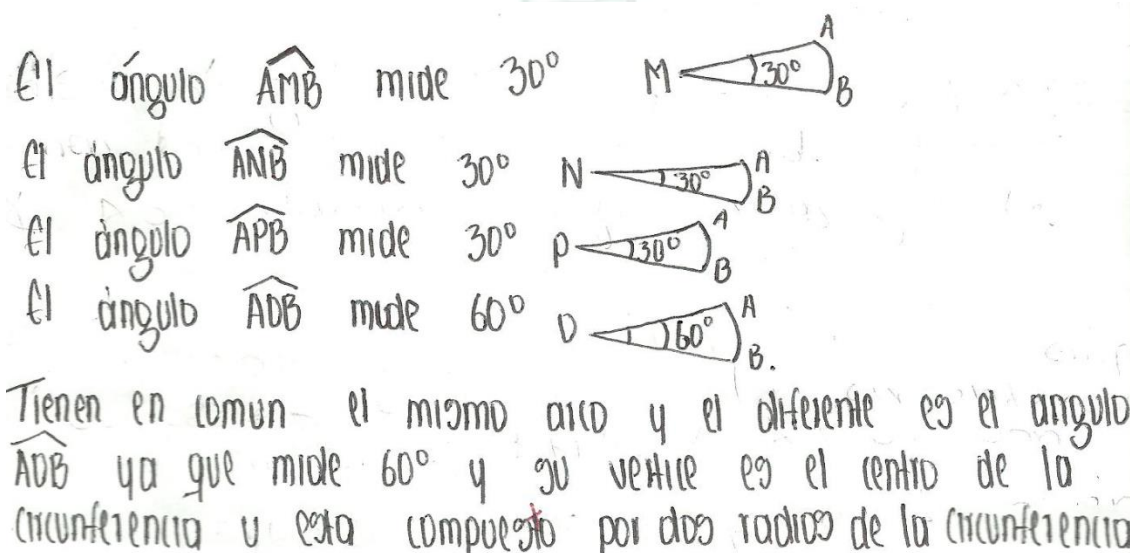 El ángulo AMB mide 30° M 30° A B
El ángulo ANB mide 30° N 30° A B
El ángulo APB mide 30° P 30° A B
El ángulo AOB mide 60° O 60° A B.
Tienen en comun el mismo arco y el diferente es el angulo
AOB ya que mide 60° y su vertice es el centro de la
circunferencia y esta compuesto por dos radios de la circunferencia